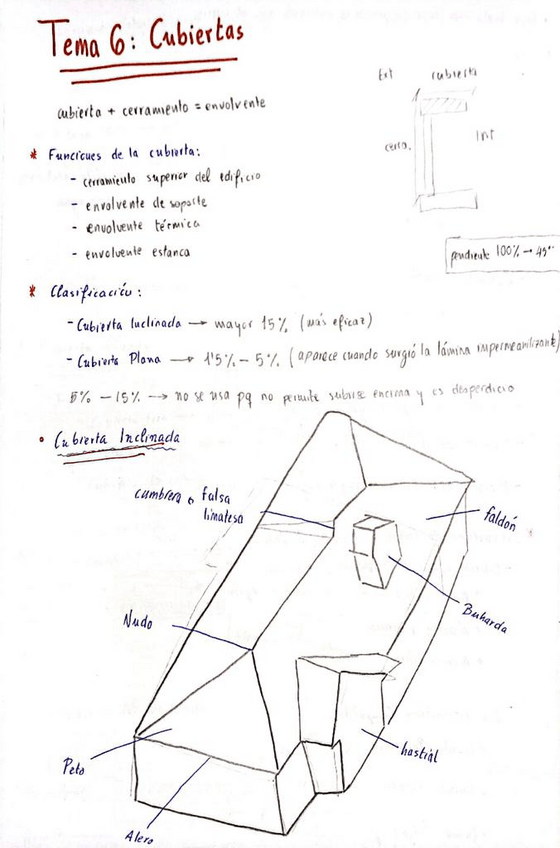 Tema 6: Cubiertas
Ext cubierta
cubierta + cerramiento = envolvente
cerra. Int
* Funciones de la cubierta:
- cerramiento superior del edificio
- envolvente de soporte
- envolvente térmica
- envolvente estanca
pendiente 100% → 45°
* Clasificación:
- Cubierta Inclinada → mayor 15% (más eficaz)
- Cubierta Plana → 1'5% - 5% (aparece cuando surgió la lámina impermeabilizante)
5% - 15% → no se usa pq no permite subirse encima y es desperdicio
• Cubierta Inclinada
cumbrera o falsa
limatesa
faldón
Buharda
Nudo
hastial
Peto
Alero